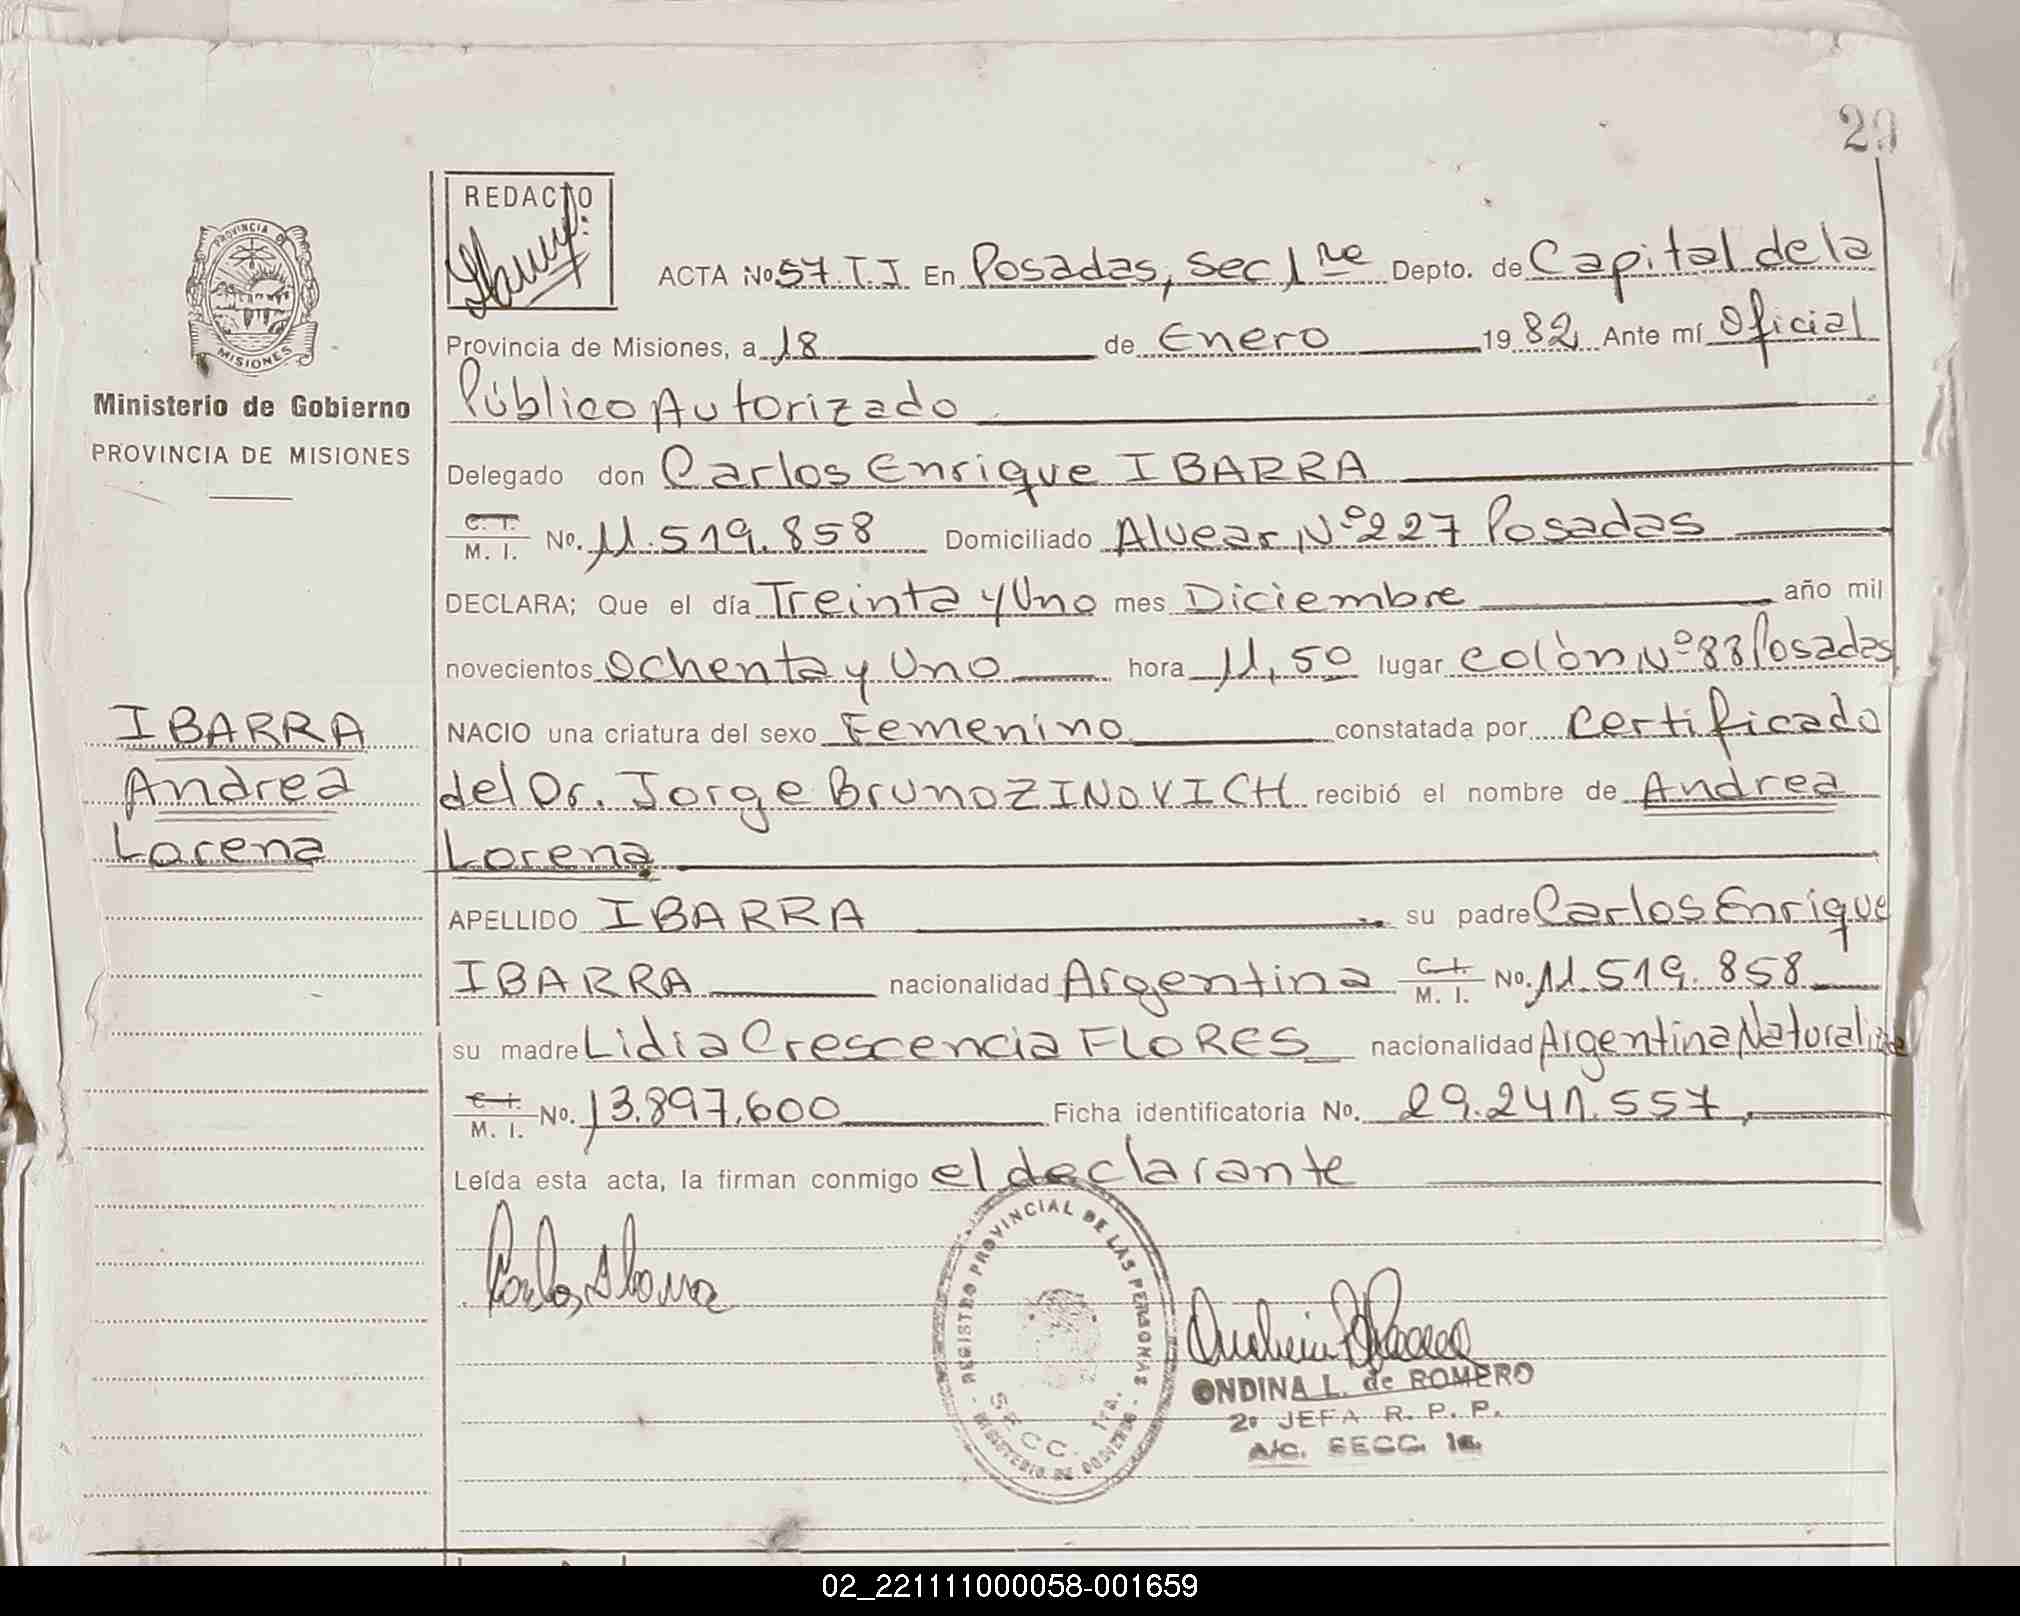 29
REDACTO
PROVINCIA DE
MISIONES
Ministerio de Gobierno
PROVINCIA DE MISIONES
IBARRA
Andrea
Lorena
ACTA No 57.T.I En Posadas, Sec 1ra Depto. de Capital de la
Provincia de Misiones, a 18 de Enero 1982 Ante mí Oficial
Público Autorizado
Delegado don Carlos Enrique IBARRA
C. I. M. I. No. 11.519.858 Domiciliado Alvear Nº 227 Posadas
DECLARA; Que el día Treinta y Uno mes Diciembre año mil
novecientos Ochenta y Uno hora 11,50 lugar Colòn Nº 88 Posadas
NACIO una criatura del sexo Femenino constatada por Certificado
del Dr. Jorge Bruno ZINOVICH recibió el nombre de Andrea
Lorena
APELLIDO IBARRA su padre Carlos Enrique
IBARRA nacionalidad Argentina C. I. M. I. No. 11.519.858
su madre Lidia Crescencia FLORES nacionalidad Argentina Naturaliza
C. I. M. I. No. 13.897.600 Ficha identificatoria No. 29.241.557
Leída esta acta, la firman conmigo el declarante
Carlos Ibarra
REGISTRO PROVINCIAL DE LAS PERSONAS
SECC. 1ra.
MINISTERIO DE GOBIERNO
ONDINA L. de ROMERO
2º JEFA R. P. P.
A/C. SECC. 1a.
02_221111000058-001659